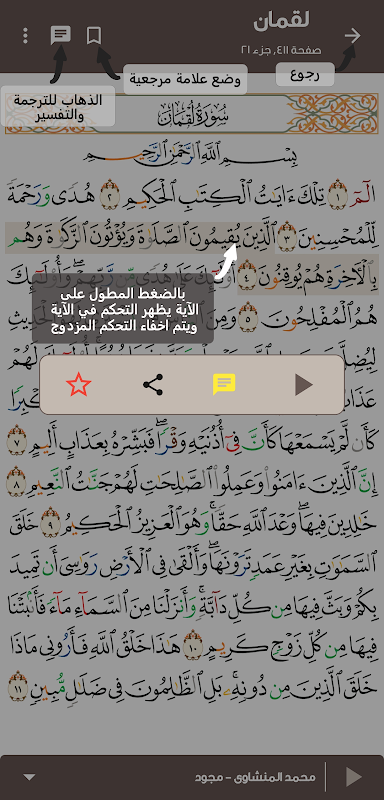 لقمان
صفحة ٤١١، جزء ٢١
رجوع
وضع علامة مرجعية
الذهاب للترجمة
والتفسير
سُورَةُ لُقْمَان
بِسْمِ ٱللَّهِ ٱلرَّحْمَٰنِ ٱلرَّحِيمِ
الٓمٓ ١ تِلْكَ ءَايَٰتُ ٱلْكِتَٰبِ ٱلْحَكِيمِ ٢ هُدًى وَرَحْمَةً
لِّلْمُحْسِنِينَ ٣ ٱلَّذِينَ يُقِيمُونَ ٱلصَّلَوٰةَ وَيُؤْتُونَ ٱلزَّكَوٰةَ وَهُم
بِٱلْأَخِرَةِ هُمْ يُوقِنُونَ ٤ أُو۟لَٰٓئِكَ عَلَىٰ هُدًى مِّن رَّبِّهِمْ وَأُو۟لَٰٓئِكَ
هُمُ ٱلْمُفْلِحُونَ ٥ وَمِنَ ٱلْحَدِيثِ
بالضغط المطول على
الآية يظهر التحكم في الآية
ويتم اخفاء التحكم المزدوج
لِيُضِلَّ لَهُمْ
عَذَابٌ
كَأَن لَّمْ يَسْمَعْهَا كَأَنَّ فِىٓ أُذُنَيْهِ وَقْرًا فَبَشِّرْهُ بِعَذَابٍ أَلِيمٍ ٧
إِنَّ ٱلَّذِينَ ءَامَنُوا۟ وَعَمِلُوا۟ ٱلصَّٰلِحَٰتِ لَهُمْ جَنَّٰتُ ٱلنَّعِيمِ ٨
خَٰلِدِينَ فِيهَا وَعْدَ ٱللَّهِ حَقًّا وَهُوَ ٱلْعَزِيزُ ٱلْحَكِيمُ ٩ خَلَقَ
ٱلسَّمَٰوَٰتِ بِغَيْرِ عَمَدٍ تَرَوْنَهَا وَأَلْقَىٰ فِى ٱلْأَرْضِ رَوَٰسِىَ أَن تَمِيدَ
بِكُمْ وَبَثَّ فِيهَا مِن كُلِّ دَآبَّةٍ وَأَنزَلْنَا مِنَ ٱلسَّمَآءِ مَآءً فَأَنۢبَتْنَا
فِيهَا مِن كُلِّ زَوْجٍ كَرِيمٍ ١٠ هَٰذَا خَلْقُ ٱللَّهِ فَأَرُونِى مَاذَا
خَلَقَ ٱلَّذِينَ مِن دُونِهِۦ بَلِ ٱلظَّٰلِمُونَ فِى ضَلَٰلٍ مُّبِينٍ ١١
محمد المنشاوى - مجود